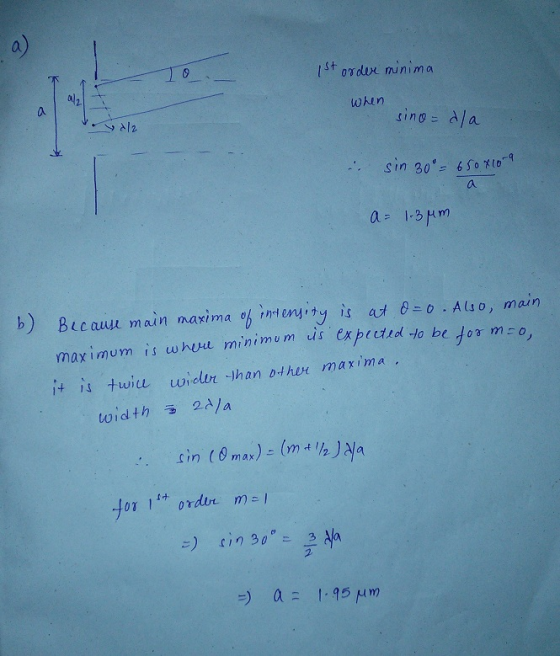 a)
θ
a/2
a
λ/2
1st order minima
when
sinθ = λ/a
∴ sin 30° = 650×10⁻⁹/a
a = 1.3 μm
b) Because main maxima of intensity is at θ=0. Also, main
maximum is where minimum is expected to be for m=0,
it is twice wider than other maxima.
width = 2λ/a
∴ sin (θ max) = (m+1/2) λ/a
for 1st order m=1
=) sin 30° = 3/2 λ/a
=) a = 1.95 μm